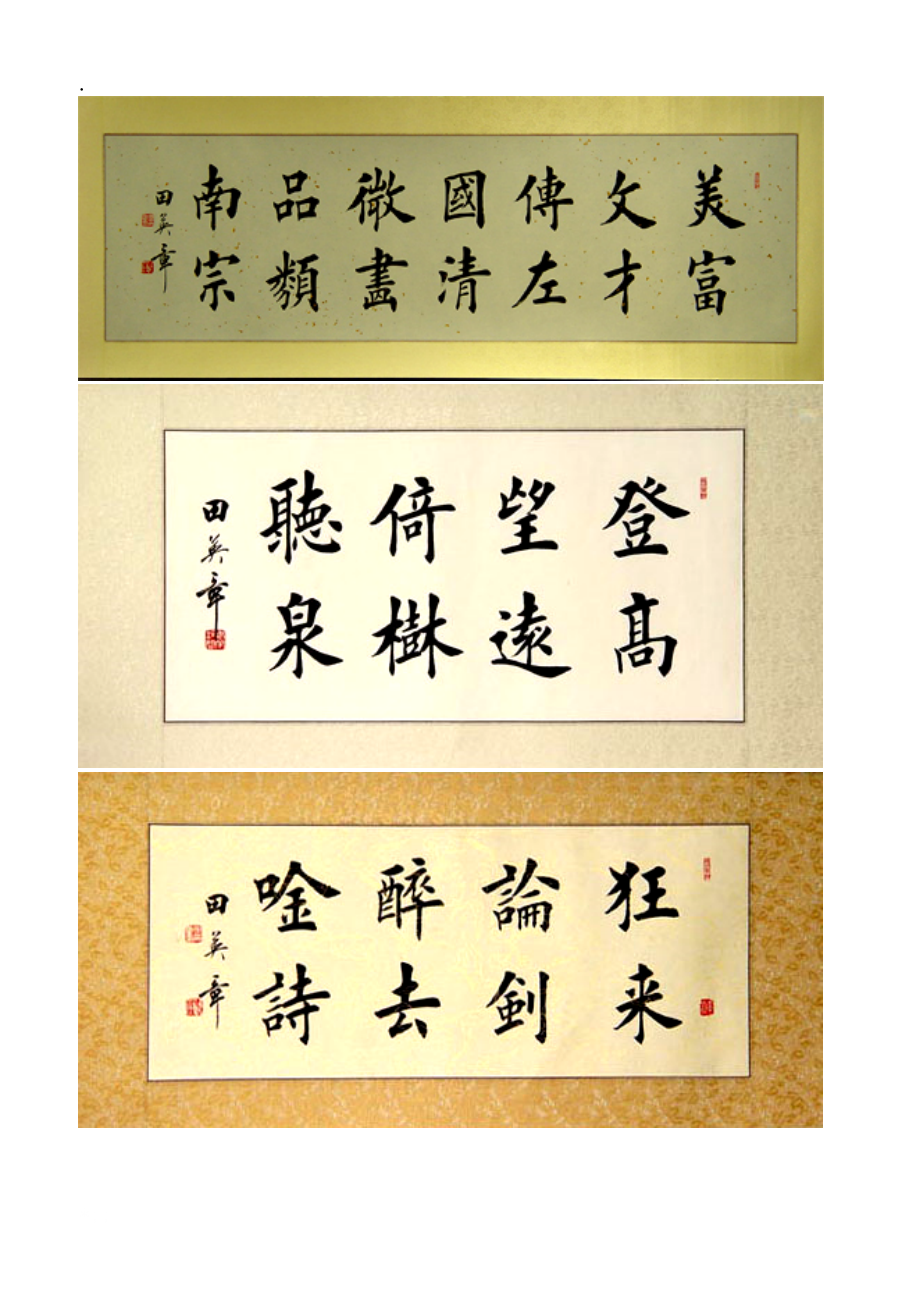 .
美富
文才
傳左
國清
微畫
品類
南宗
田英章
登髙
望遠
倚樹
聽泉
田英章
狂来
論劍
醉去
唫詩
田英章